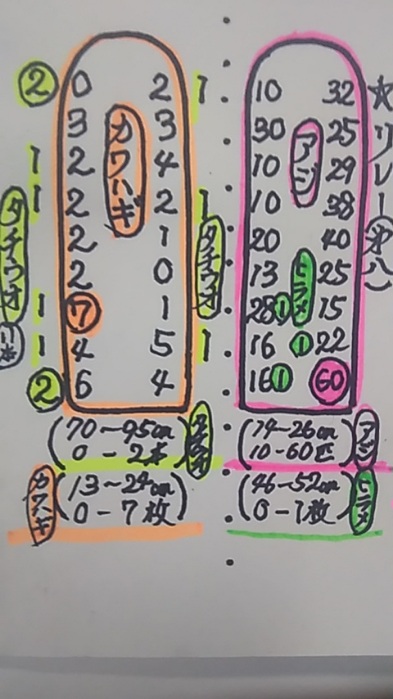 ② 0 2 1
3 カワハギ 3
1 2 4
1 2 2 1
タチウオ 2 1 タチウオ
2 0
1 ⑦ 1
1 4 5 1
② 6 4
(70~95cm 0-2本) タチウオ
カワハギ (13~24cm 0-7枚)
10 32
30 アジ 25
10 29
10 38
20 40
13 ヒラメ 25
28① 15
16 ① 22
16① 60
(14~26cm 10-60匹) アジ
(46~52cm 0-1枚) ヒラメ
☆リレー